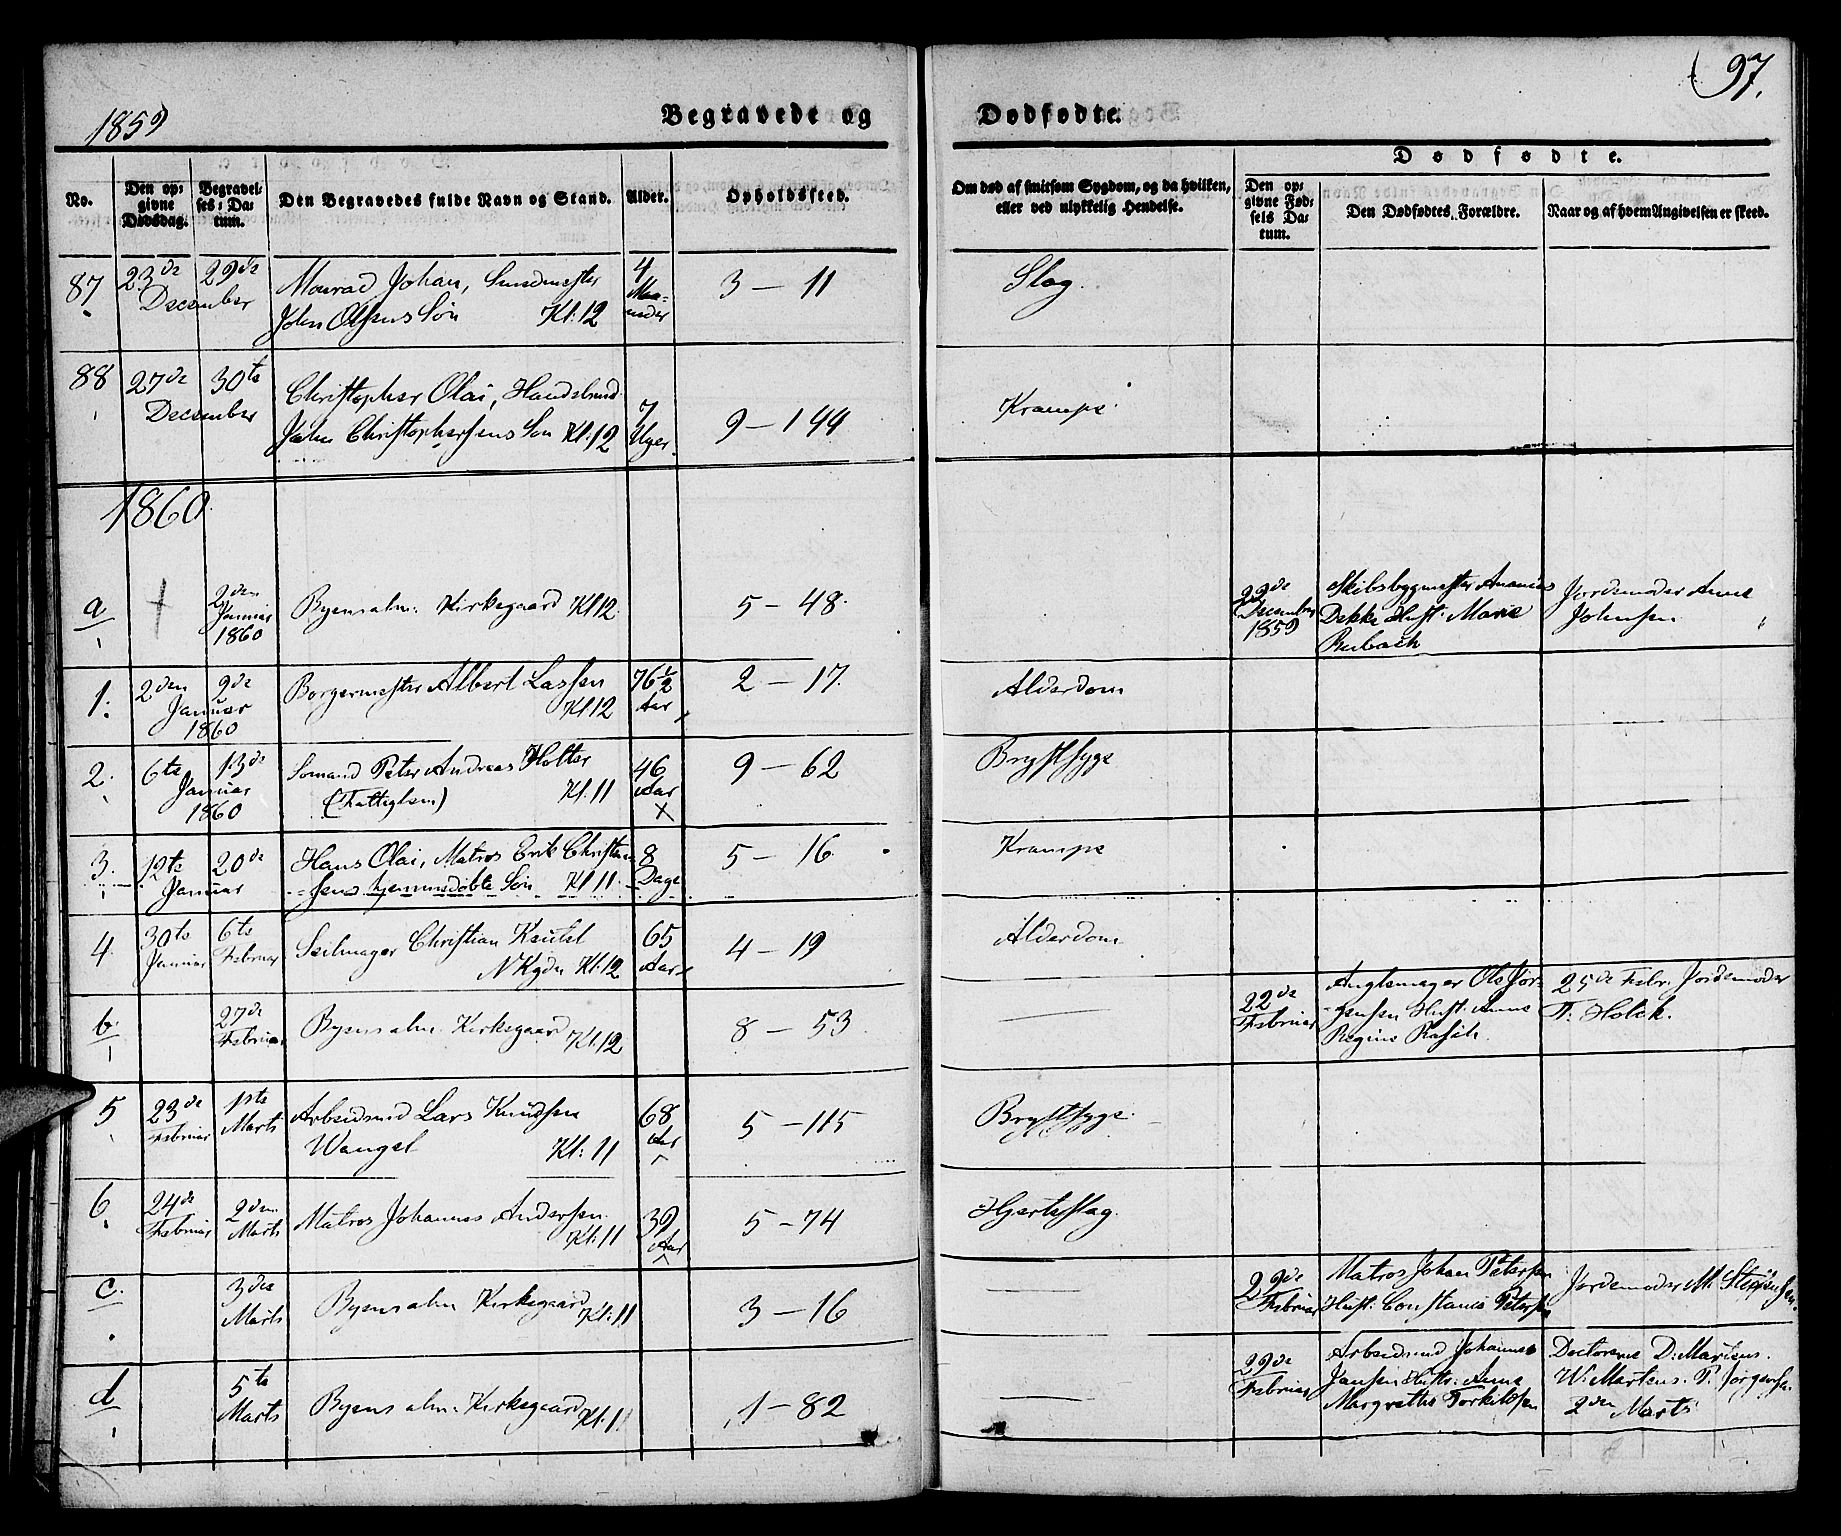 97.
1859
Begravede og
Dødfødte.
No.
Den op-
givne
Dødsdag.
Begravel-
ses-Da-
tum.
Den Begravedes fulde Navn og Stand.
Alder.
Opholdssted.
Om død af smitsom Sygdom, og da hvilken,
eller ved ulykkelig Hendelse.
Dødfødte.
Den op-
givne Fød-
sels Da-
tum.
Den Dødfødtes Forældre.
Naar og af hvem Angivelsen er skeed.
87 23de 29de December
Monrad Johan, Smedmester
John Olsens Søn Kl: 12
4 Maa-
neder
3 – 11
Slag.
88 27de 30te December
Christopher Olai, Handelsmd.
John Christophersens Søn Kl: 12
7 Uger.
9 – 144
Krampe.
1860.
a
2den Januar 1860
Byens alm. Kirkegaard Kl 12.
5 – 48.
22de December 1859
Skibsbygmester Ananias
Dekke Hust: Marie
Jordemoder Anne
Johnsen
1. 2den 9de Januar 1860
Borgermester Albert Lassen
Kl 12
76 1/2 Aar
2 – 17.
Alderdom
2. 6te 13de Januar 1860
Sømand Peter Andreas Holter
(Fattiglem) Kl. 11
46 Aar
9 – 62
Brystsyge
3. 12te 20de Januar
Hans Olai, Matros Erik Christian-
sens hjemmedøbte Søn Kl 11.
8 Dage
5 – 16.
Krampe
4. 30te Januar 6te Februar
Seilmager Christian
N Kgdn Kl: 12
65 Aar
4 – 19
Alderdom
b. 27de Februar
Byens alm. Kirkegaard Kl. 12
8 – 53.
22de Februar
Ole Jør-
gensen Hust. Anne
Regine
25de Febr. Jordemoder
F. Holck.
5 23de Februar 1ste Marts
Arbeidsmd Lars Knudsen
Wangel Kl: 11
68 Aar
5 – 115
Brystsyge.
6. 24de Februar 2den Marts
Matros Johannes Andersen.
Kl: 11
39 Aar
5 – 74
Hjerteslag.
c. 3die Marts
Byens alm Kirkegaard Kl: 11
3 – 16
29de Februar
Matros Johan Petersen
Hust: Constanse Petersen
Jordemoder M.
d 5te Marts
Byens alm. Kirkegaard Kl. 11
1 – 82
29de Februar
Arbeidsmd Johannes
Jansen Hustr: Anne
Margrethe Torkildsen
Doctorerne D: Martens.
W: Martens. P. Jørgensen
2den Marts